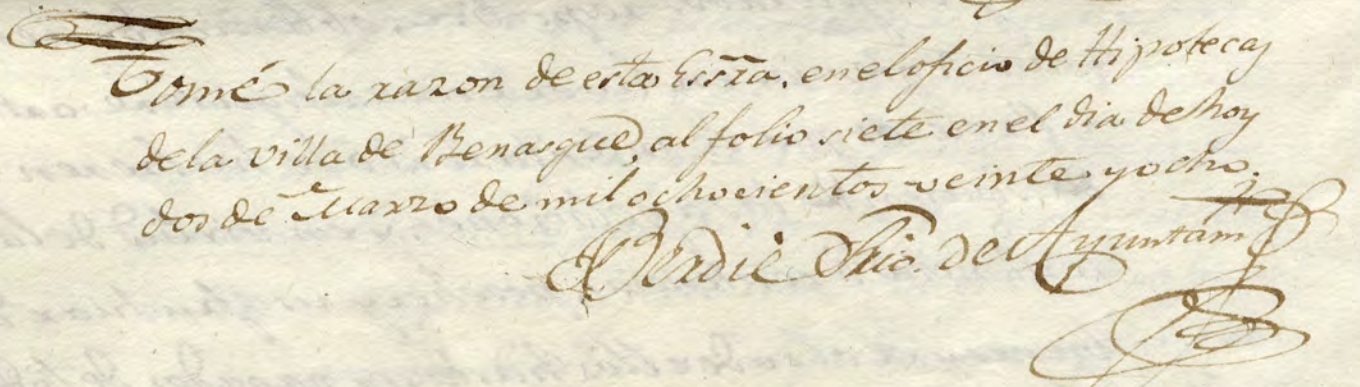 Tomé la razon de esta Essra. en el oficio de Hipotecas
de la villa de Benasque, al folio siete en el dia de hoy
dos de Marzo de mil ochocientos veinte y ocho.
Ferdie Srio. de Ayuntam.to